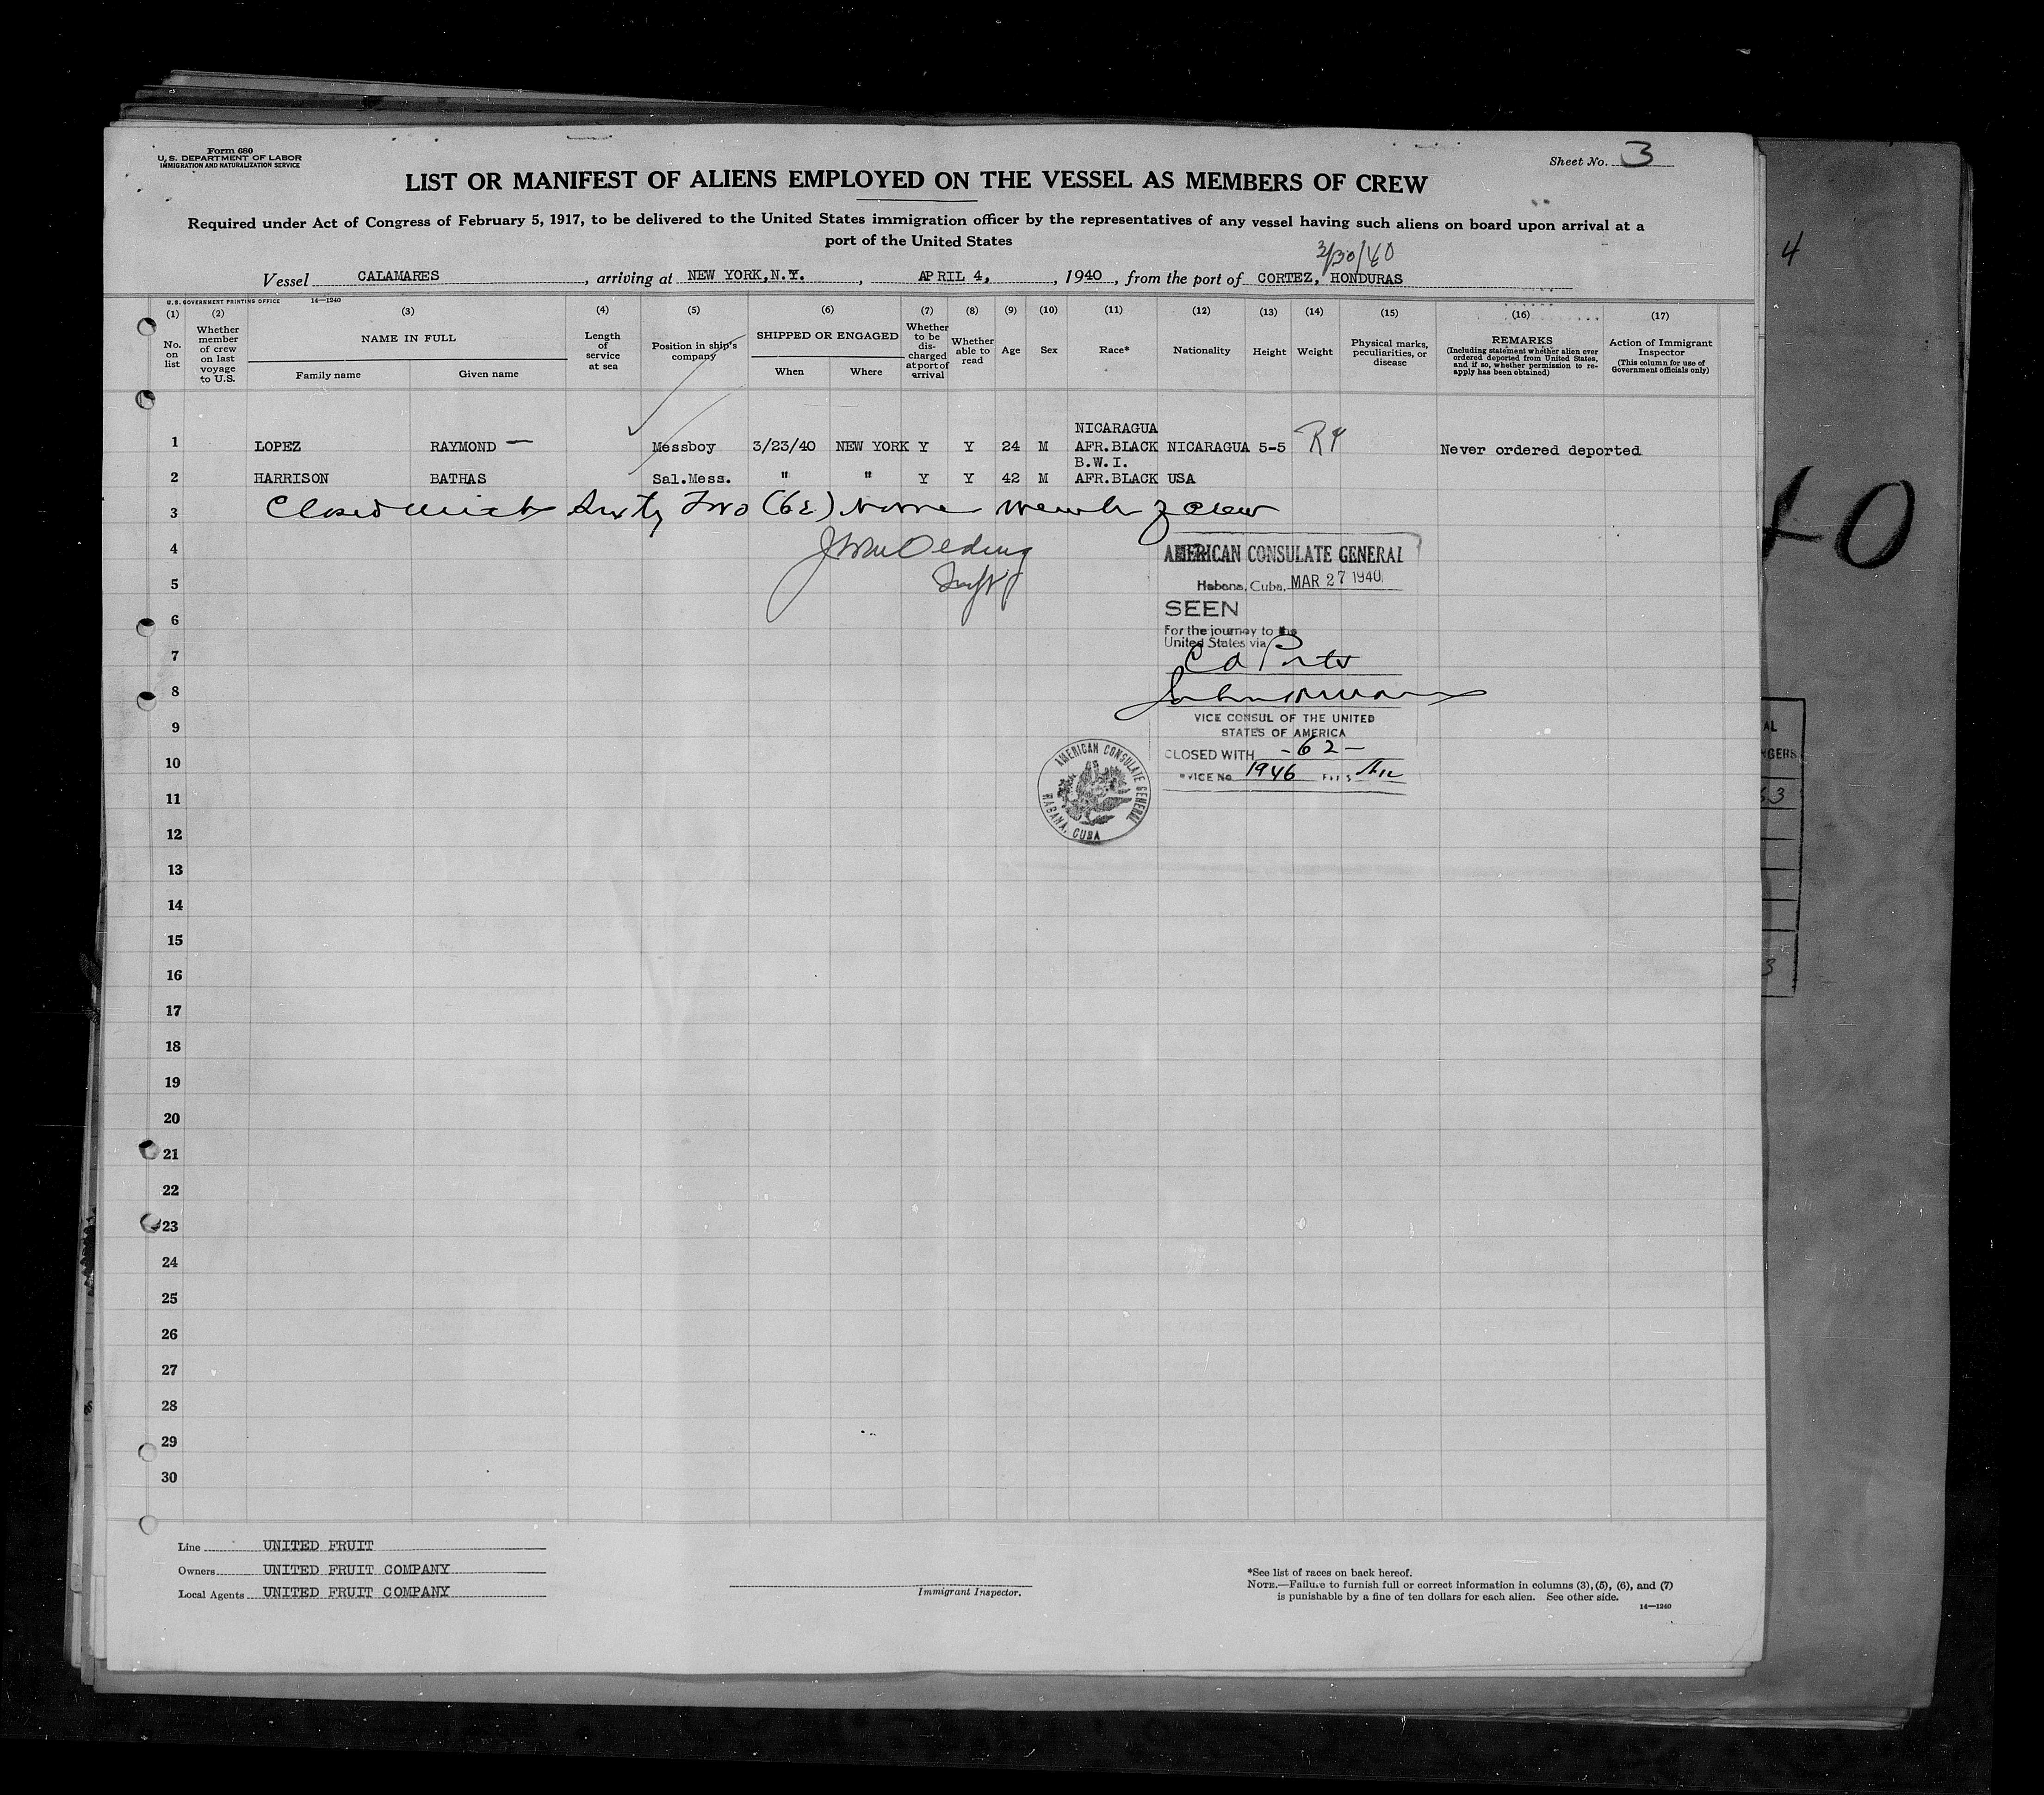 Form 680
U. S. DEPARTMENT OF LABOR
IMMIGRATION AND NATURALIZATION SERVICE
Sheet No. 3
LIST OR MANIFEST OF ALIENS EMPLOYED ON THE VESSEL AS MEMBERS OF CREW
Required under Act of Congress of February 5, 1917, to be delivered to the United States immigration officer by the representatives of any vessel having such aliens on board upon arrival at a
port of the United States
3/30/40
Vessel CALAMARES, arriving at NEW YORK, N.Y., APRIL 4, 1940, from the port of CORTEZ, HONDURAS
U. S. GOVERNMENT PRINTING OFFICE 14—1240
(1) No. on list
(2) Whether member of crew on last voyage to U.S.
(3) NAME IN FULL
Family name Given name
(4) Length of service at sea
(5) Position in ship's company
(6) SHIPPED OR ENGAGED
When Where
(7) Whether to be discharged at port of arrival
(8) Whether able to read
(9) Age
(10) Sex
(11) Race*
(12) Nationality
(13) Height
(14) Weight
(15) Physical marks, peculiarities, or disease
(16) REMARKS
(Including statement whether alien ever ordered deported from United States, and if so, whether permission to re-apply has been obtained)
(17) Action of Immigrant Inspector
(This column for use of Government officials only)
NICARAGUA
1 LOPEZ RAYMOND — Messboy 3/23/40 NEW YORK Y Y 24 M AFR.BLACK NICARAGUA 5-5 Never ordered deported
B.W.I.
2 HARRISON BATHAS Sal.Mess. " " Y Y 42 M AFR.BLACK USA
3 Closed with Sixty Two (62) Name Member of Crew
4
5
6
7
8
9
10
11
12
13
14
15
16
17
18
19
20
21
22
23
24
25
26
27
28
29
30
AMERICAN CONSULATE GENERAL
Habana, Cuba, MAR 27 1940
SEEN
For the journey to the
United States via
VICE CONSUL OF THE UNITED
STATES OF AMERICA
CLOSED WITH -62-
SERVICE No. 1946
AMERICAN CONSULATE GENERAL
HABANA, CUBA
Line UNITED FRUIT
Owners UNITED FRUIT COMPANY
Local Agents UNITED FRUIT COMPANY
Immigrant Inspector.
*See list of races on back hereof.
NOTE.—Failure to furnish full or correct information in columns (3), (5), (6), and (7)
is punishable by a fine of ten dollars for each alien. See other side.
14—1240
4